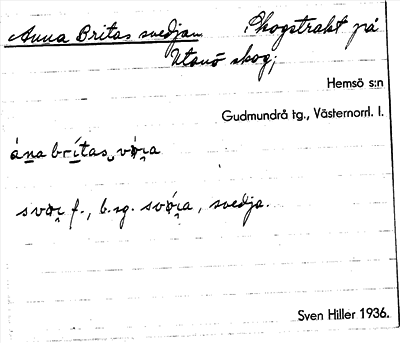 Anna Britas svedjan Skogstrakt på
Utanö skog;
Hemsö s:n
Gudmundrå tg., Västernorrl. l.
ána brítas
f., b.sg. , svedja.
Sven Hiller 1936.